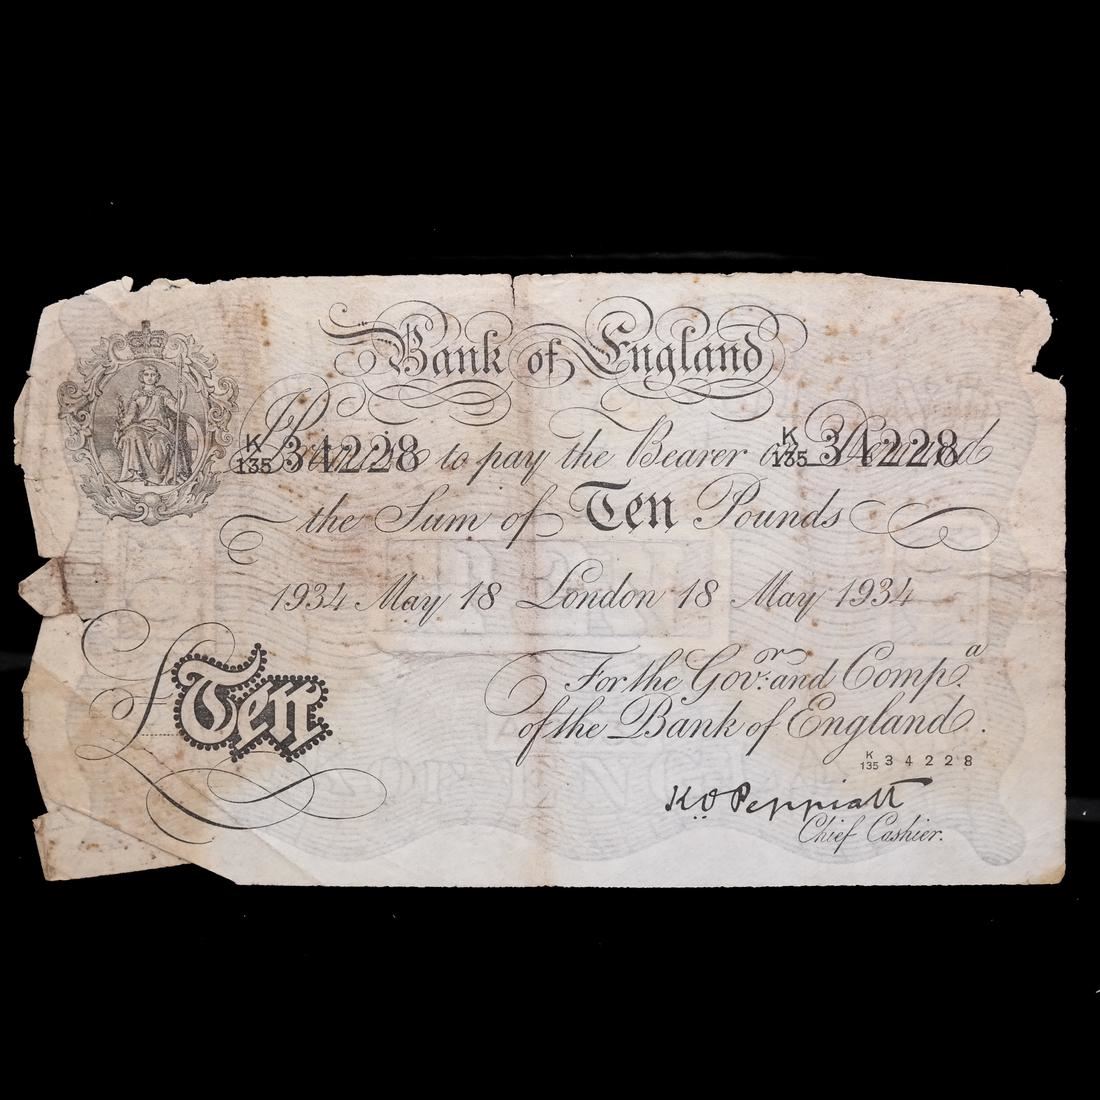 Bank of England
K/135 34228 K/135 34228
I Promise to pay the Bearer on Demand
the Sum of Ten Pounds
1934 May 18 London 18 May 1934
For the Govr. and Compa.
of the Bank of England.
£Ten
K/135 34228
K.O. Peppiatt
Chief Cashier.